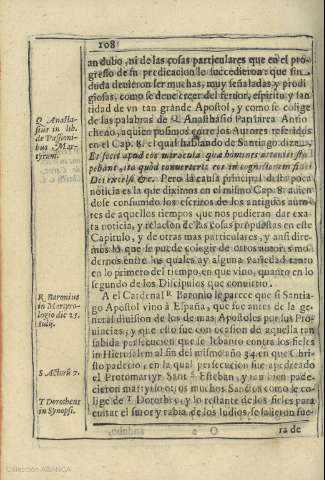 108
an dubo, ni de las cosas particulares que en el pro-
gresso de su predicacion lo succedieron: que sin
duda deuieron ser muchas, muy señaladas y prodi
giosas, como se deue creer del feruor, espiritu y san
tidad de vn tan grande Apostol, y como se colige
de las palabras de Q Anasthasio Patriarca Antio
cheno, a quien pusimos entre los Autores referidos
en el Cap. 8. el qual hablando de Santiago dize,
Et fecit apud eos miracula quæ homines
ita quod conuerteret eos in cognitionem
Dei excelsi &c. Pero la causa principal de la poca
noticia es la que diximos en el mismo Cap. 8: auien
dose consumido los escritos de los antiguos auto-
res de aquellos tiempos que nos pudieran dar exa
ta noticia, y relacion de las cosas propuestas en este
Capitulo, y de otras mas particulares, y ansi dire-
mos lo que se puede colegir de otros autores mo
dernos entre los quales ay alguna variedad tanto
en lo primero del tiempo en que vino, quanto en lo
segundo de los Discipulos que conuirtio.
A el Cardenal R Baronio le parece que si Santia-
go Apostol vino a España, que fue antes de la ge-
neral diuision de los demas Apostoles por las Pro
uincias, y que esto fue con ocasion de aquella tan
sabida persecucion que se lebanto contra los fieles
in Hierusalem al fin del mismo año 34. en que Chri-
sto padecio, en la qual persecucion fue apedreado
el Protomartyr Sant S Esteban, y tan bien pade-
cieron martyrio otros muchos Santos como le co
lige de T Dorotheo, y lo restante de los fieles para
euitar el furor y rabia de los Iudios, se salieron fue-
O 2
ra de
Q Anasta-
sius in lib.
de Passioni-
bus Mar-
tyrum.
R Baronius
in Martyro-
logio die 25.
Iulij.
S Actor. 7.
T Dorotheus
in Synopsi.
Colección ABANCA